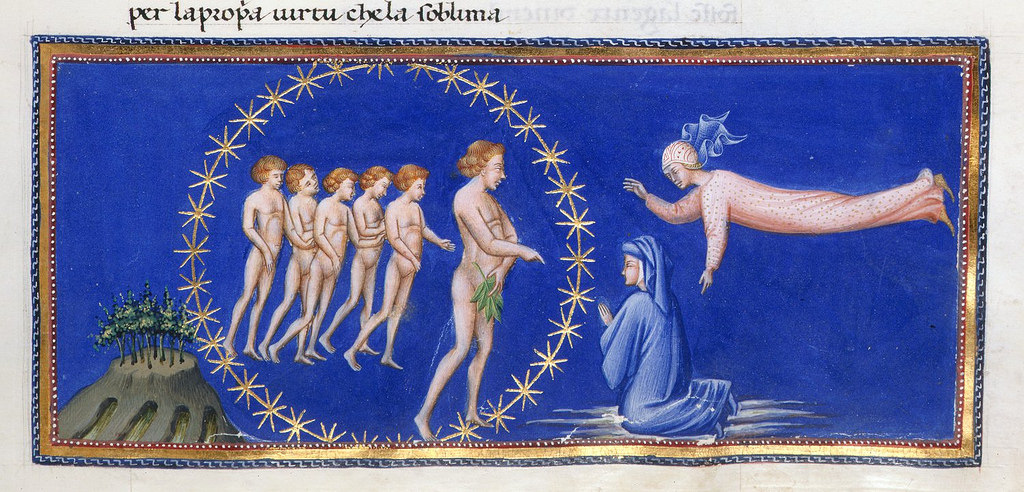 per lapropͥa uirtu chela ſoblima